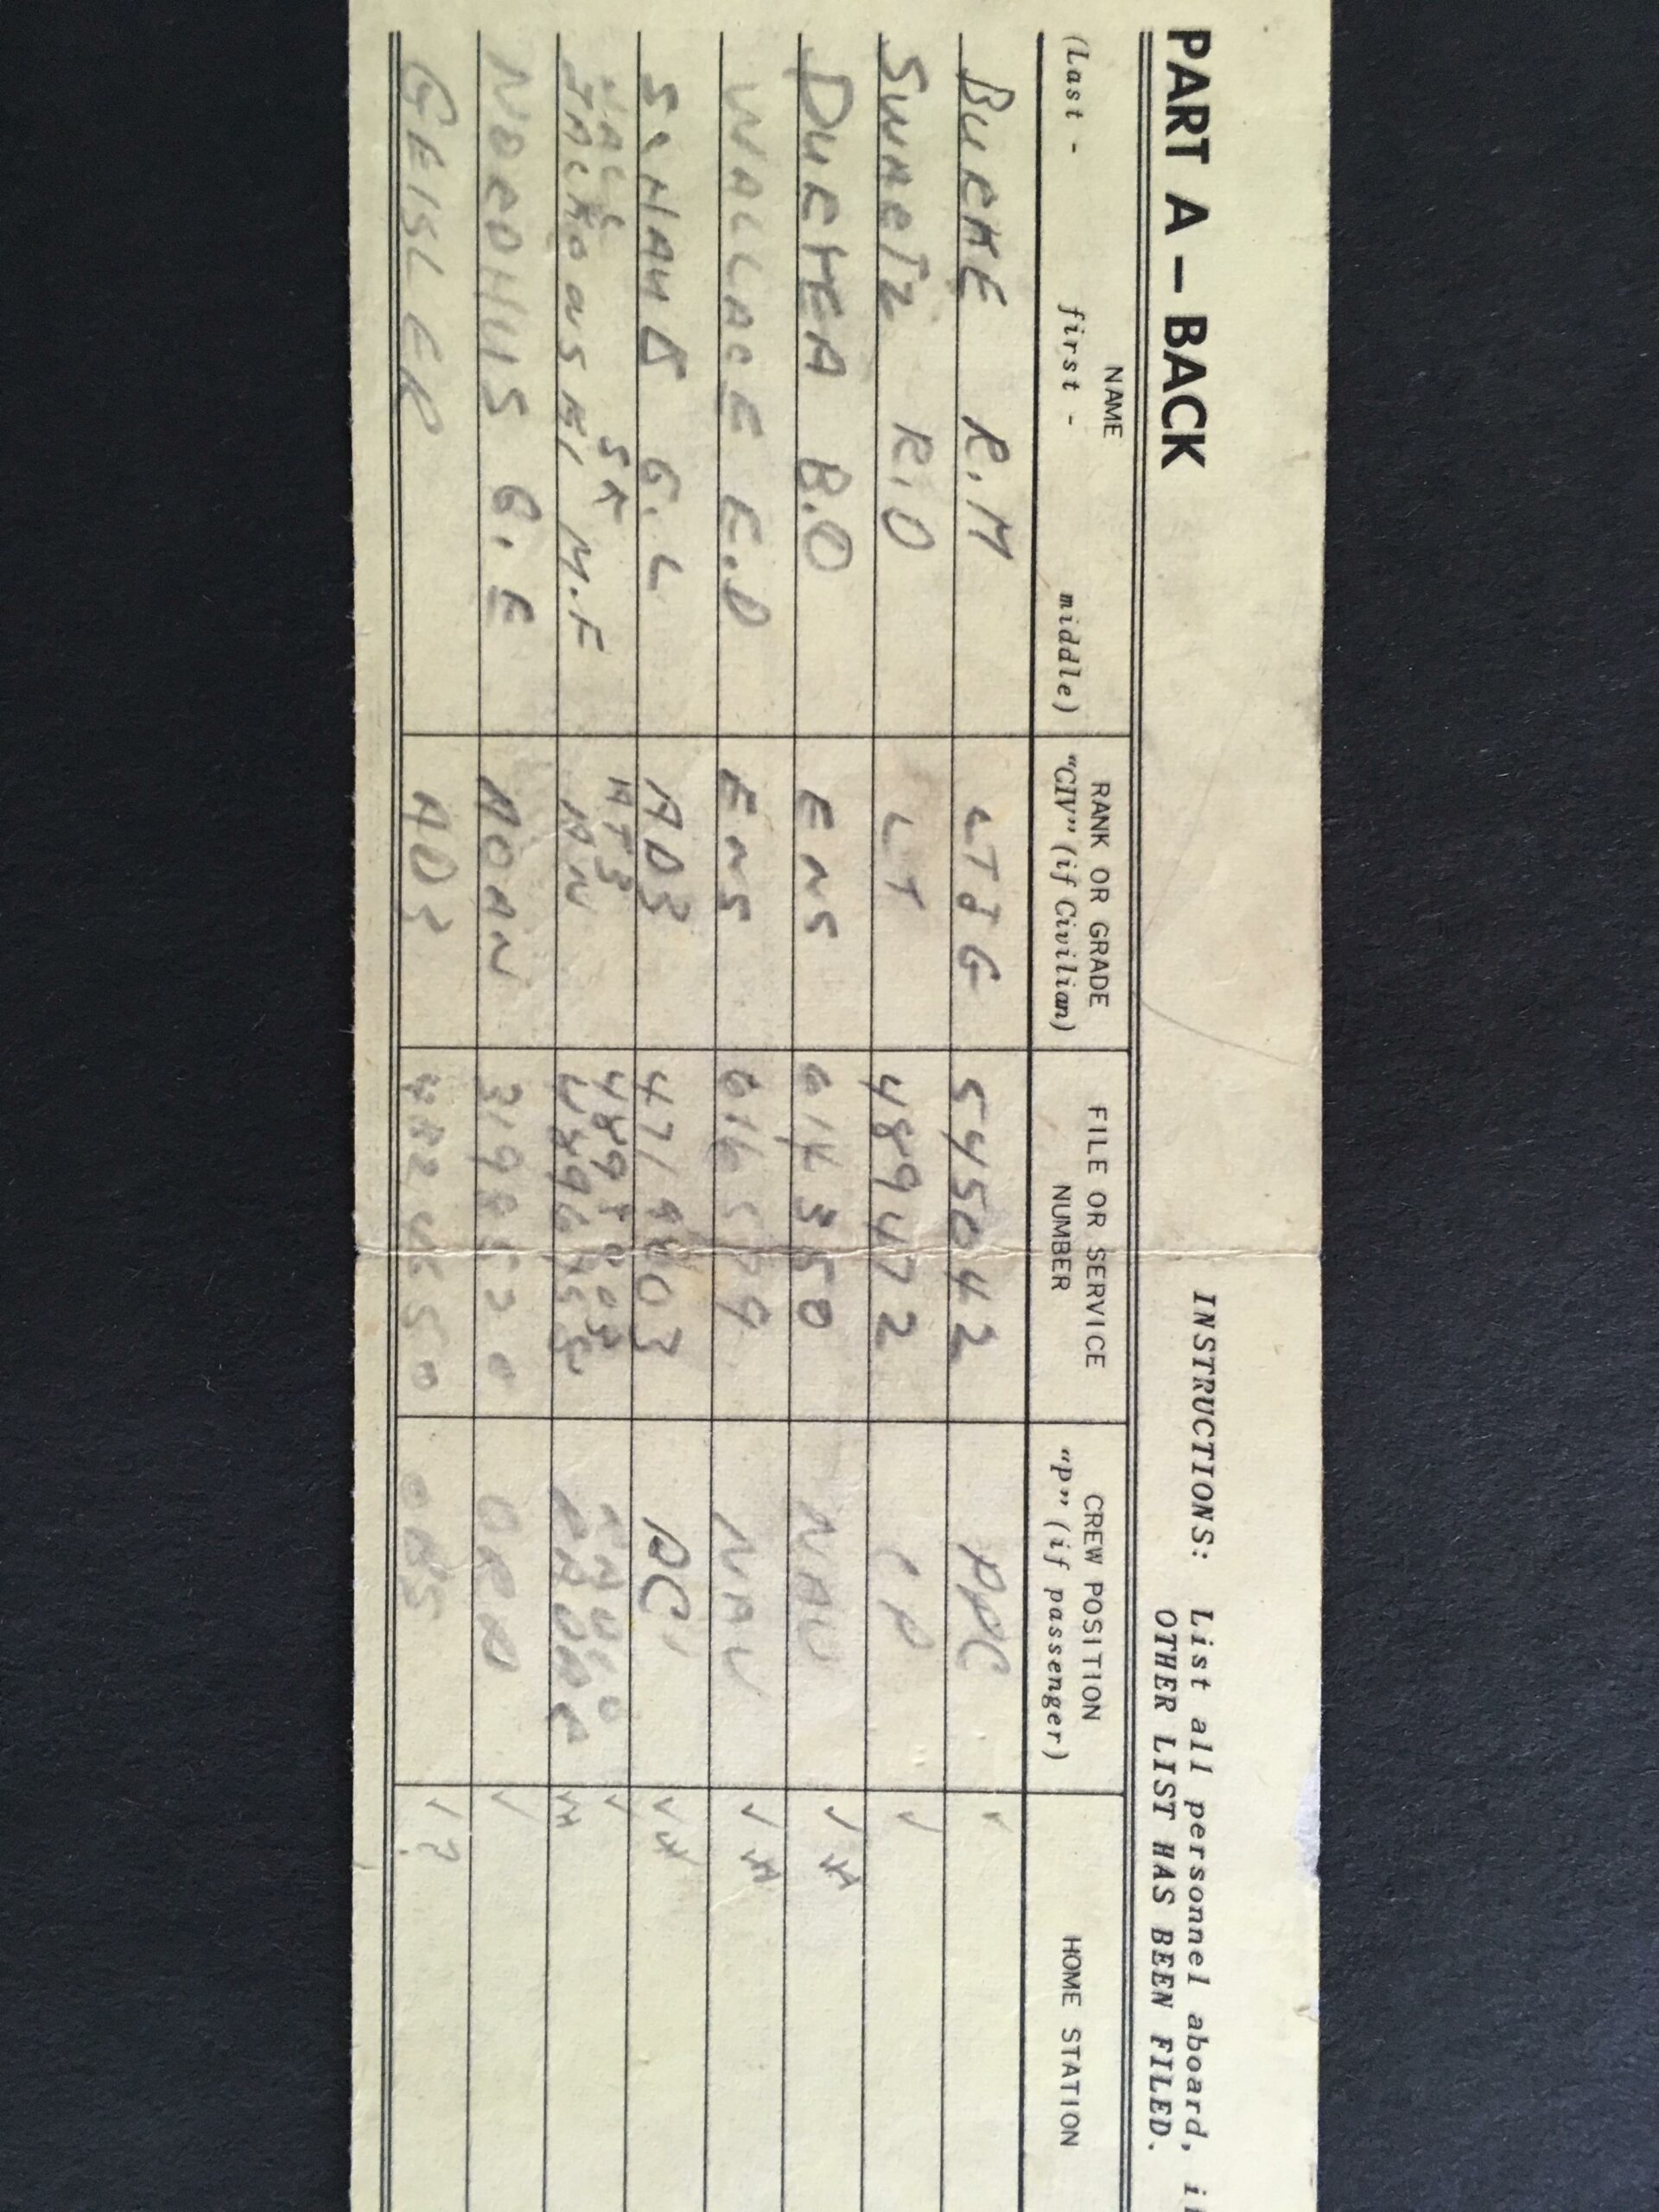 PART A – BACK
INSTRUCTIONS: List all personnel aboard,
OTHER LIST HAS BEEN FILED.
NAME
(Last - first - middle)
RANK OR GRADE
"CIV" (if Civilian)
FILE OR SERVICE
NUMBER
CREW POSITION
"P" (if passenger)
HOME STATION
BURKE R.M LTJG 545042 PPC ✓
SWARTZ R.O LT 489472 CP ✓
DURYEA B.O ENS NAV ✓
WALLACE E.D ENS NAV ✓
SCHAUB G.L AD3 PC ✓
HALL AT3 ✓
M.F AN RADAR
NORDHUS G.E AOAN ORD ✓
GEISLER AD3 OBS ✓ ?